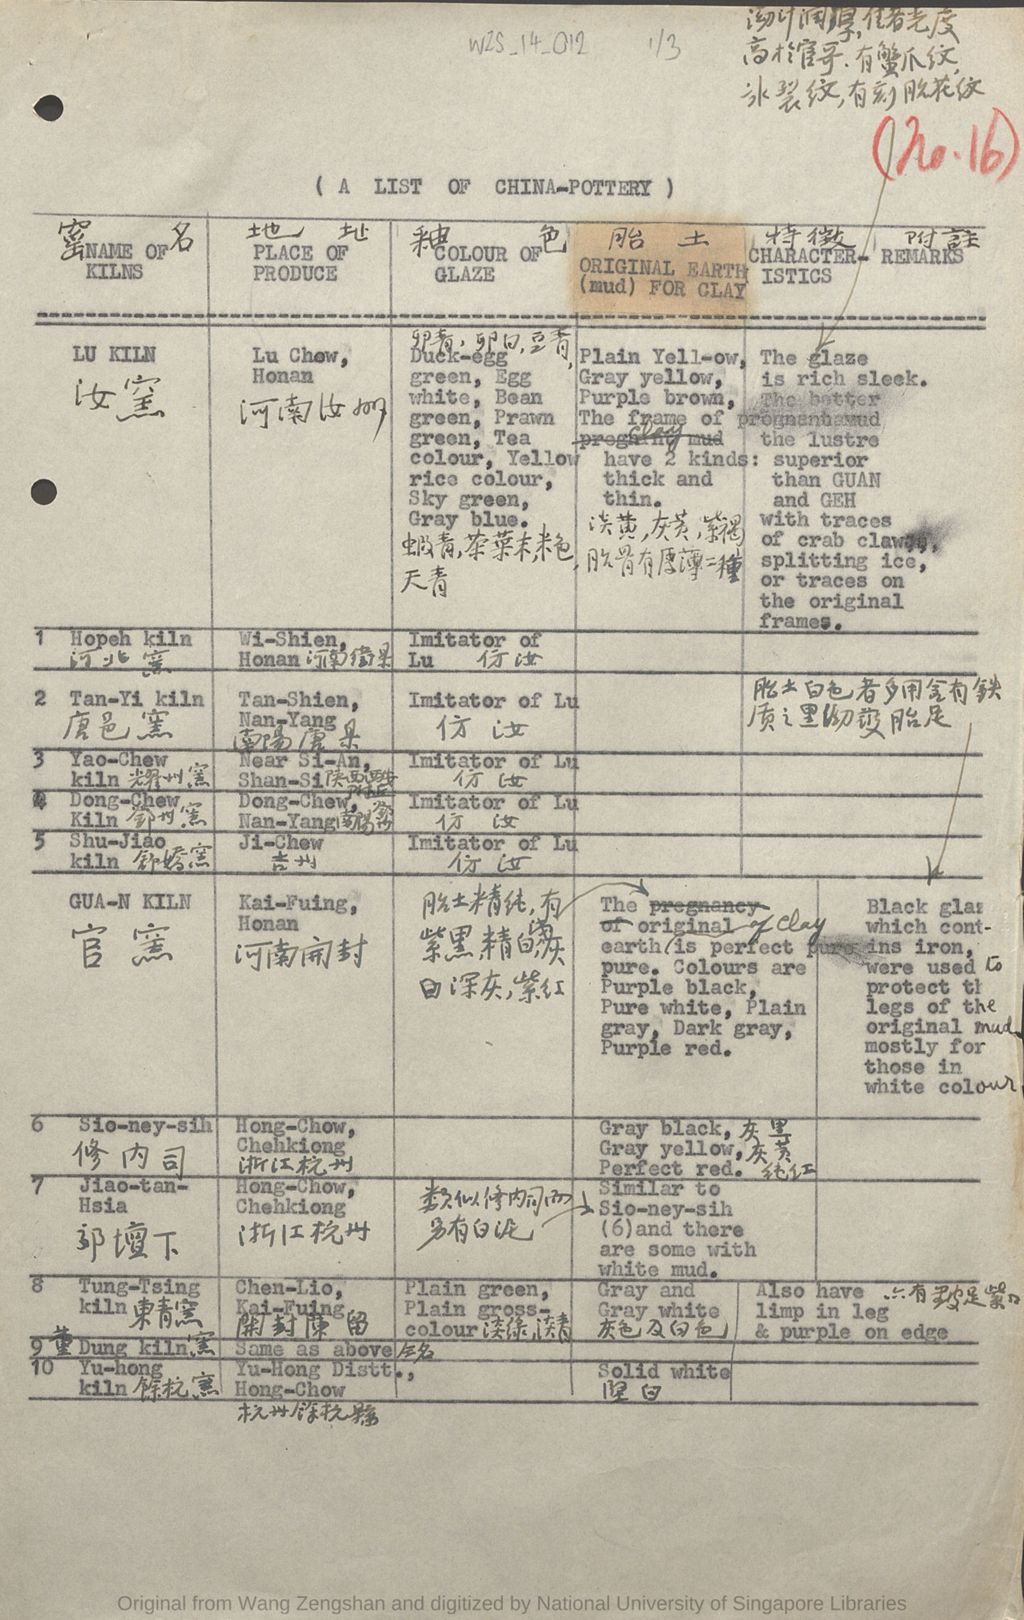 WZS_14_012 1/3
高於官哥.有蟹爪紋,
冰裂紋,有刻胎花紋
(No.16)
( A LIST OF CHINA-POTTERY )
窑名
NAME OF
KILNS
地址
PLACE OF
PRODUCE
釉色
COLOUR OF
GLAZE
胎土
ORIGINAL EARTH
(mud) FOR CLAY
特徵
CHARACTER-
ISTICS
附註
REMARKS
LU KILN
汝窯
Lu Chow,
Honan
河南汝州
卵青,卵白,豆青,
Duck-egg
green, Egg
white, Bean
green, Prawn
green, Tea
colour, Yellow
rice colour,
Sky green,
Gray blue.
蝦青,茶葉末,米色,
天青
Plain Yell-ow,
Gray yellow,
Purple brown,
The frame of
clay
pregnant mud
have 2 kinds:
thick and
thin.
淡黄,灰黄,紫褐
胎骨有厚薄二種
The glaze
is rich sleek.
The better
the lustre
superior
than GUAN
and GEH
with traces
of crab claws,
splitting ice,
or traces on
the original
frames.
1 Hopeh kiln
河北窯
Wi-Shien,
Honan 河南衛県
Imitator of
Lu 仿汝
2 Tan-Yi kiln
唐邑窯
Tan-Shien,
Nan-Yang
南陽唐県
Imitator of Lu
仿汝
胎土白色者多用含有鉄
质之黑釉護胎足
3 Yao-Chew
kiln 耀州窯
Near Si-An,
Shan-Si 陝西西安
Imitator of Lu
仿汝
4 Dong-Chew
Kiln 鄧州窯
Dong-Chew,
Nan-Yang
Imitator of Lu
仿汝
5 Shu-Jiao
kiln
Ji-Chew
吉州
Imitator of Lu
仿汝
GUA-N KILN
官窯
Kai-Fuing,
Honan
河南開封
胎土精純,有
紫黑,精白,淡灰
白深灰,紫红
The pregnancy
of original of clay
earth is perfect pure
pure. Colours are
Purple black,
Pure white, Plain
gray, Dark gray,
Purple red.
Black glaz
which cont-
ins iron,
were used to
protect th
legs of the
original mud
mostly for
those in
white colour
6 Sio-ney-sih
修内司
Hong-Chow,
Chehkiong
浙江杭州
Gray black, 灰黑
Gray yellow, 灰黄
Perfect red. 純红
7 Jiao-tan-
Hsia
郊壇下
Hong-Chow,
Chehkiong
浙江杭州
類似修内司而
另有白泥
Similar to
Sio-ney-sih
(6)and there
are some with
white mud.
8 Tung-Tsing
kiln 東青窯
Chen-Lio,
Kai-Fuing
開封陳留
Plain green,
Plain gross-
colour 淡绿,淡青
Gray and
Gray white
灰色及白色
Also have
limp in leg
& purple on edge
9 董 Dung kiln 窯
Same as above
10 Yu-hong
kiln 餘杭窯
Yu-Hong Distt.,
Hong-Chow
杭州餘杭縣
Solid white
堅白
Original from Wang Zengshan and digitized by National University of Singapore Libraries